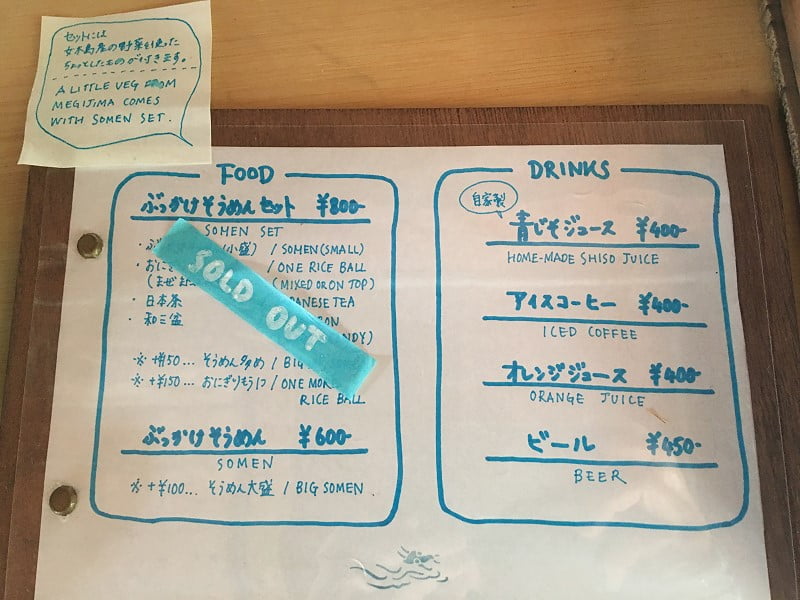 セットには
女木島産の野菜を使った
ちょっとしたものが付きます。
A LITTLE VEG FROM
MEGIJIMA COMES
WITH SOMEN SET.
FOOD
ぶっかけそうめんセット ¥800-
SOMEN SET
・ぶ (小盛) / SOMEN (SMALL)
・おにぎ / ONE RICE BALL
(まぜ (MIXED OR ON TOP)
・日本茶 JAPANESE TEA
・和三盆
SOLD OUT
※ +¥50... そうめん多め / BIG SOMEN
※ +¥150... おにぎりもう1つ / ONE MORE
RICE BALL
ぶっかけそうめん ¥600-
SOMEN
※ +¥100... そうめん大盛 / BIG SOMEN
DRINKS
自家製
青じそジュース ¥400-
HOME-MADE SHISO JUICE
アイスコーヒー ¥400-
ICED COFFEE
オレンジジュース ¥400-
ORANGE JUICE
ビール ¥450-
BEER